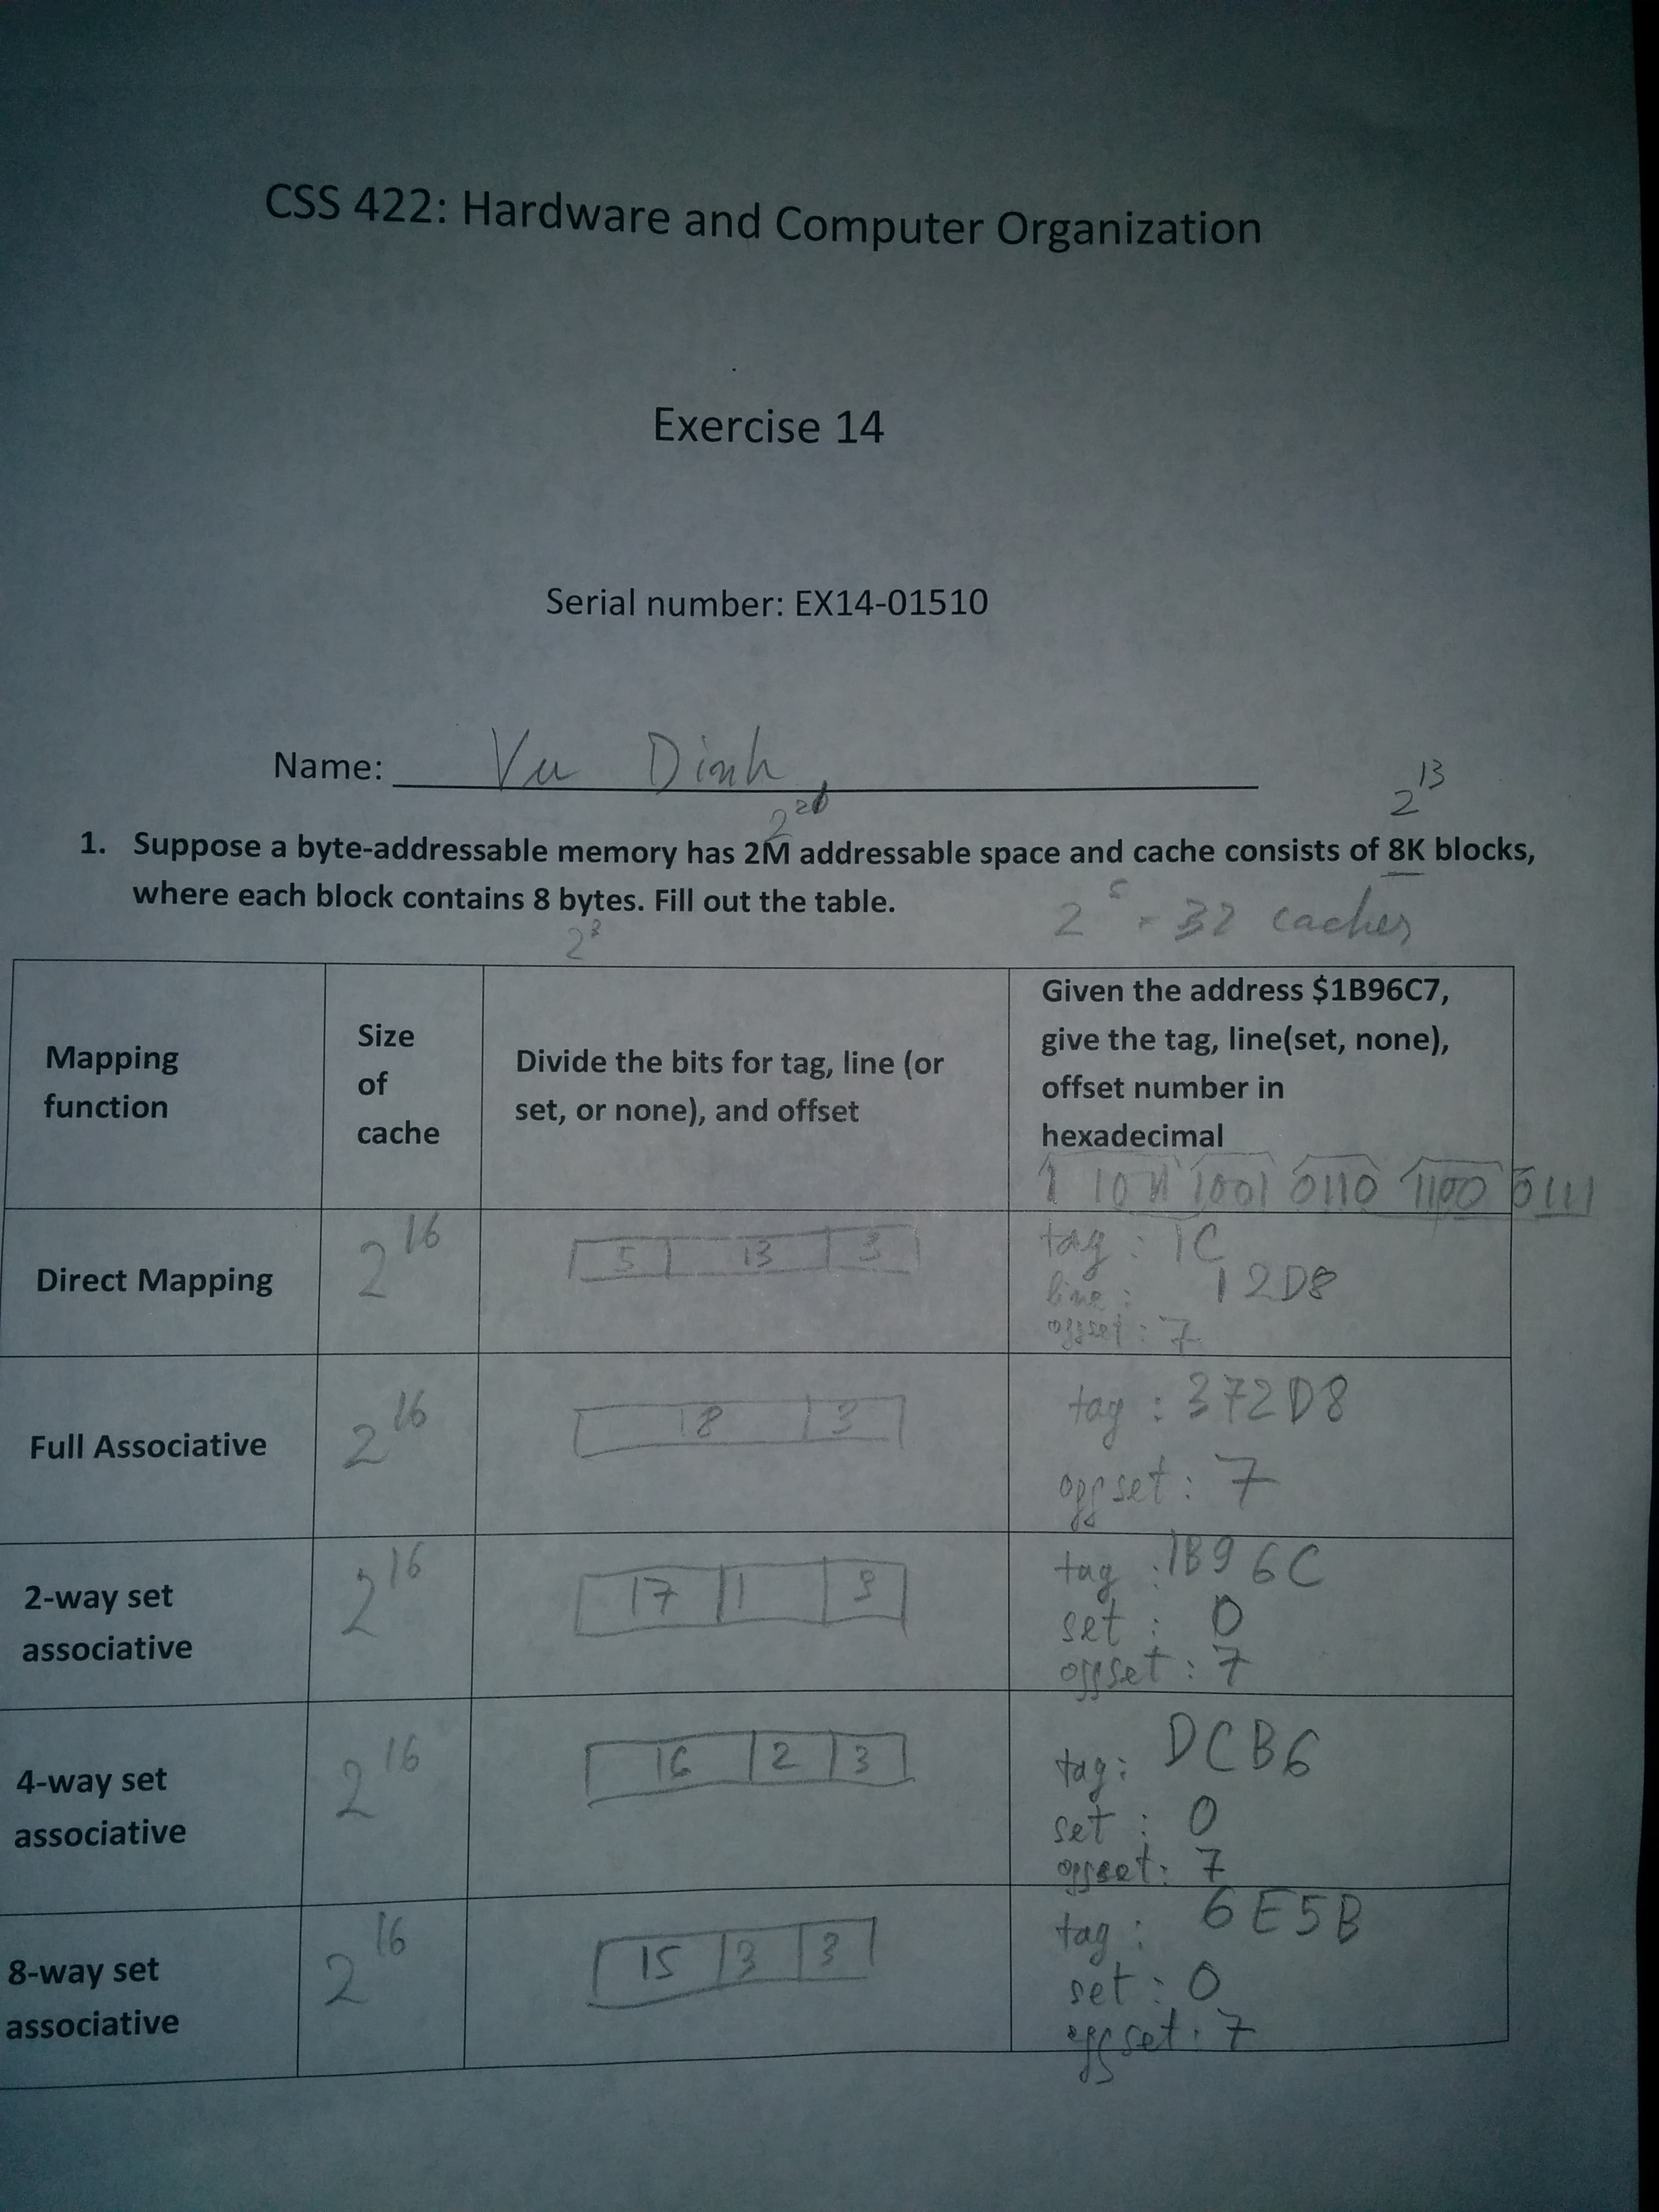 CSS 422: Hardware and Computer Organization
Exercise 14
Serial number: EX14-01510
Name: Vu Dinh
2^13
1. Suppose a byte-addressable memory has 2M addressable space and cache consists of 8K blocks,
where each block contains 8 bytes. Fill out the table.
2^5 = 32 caches
2^3
Mapping function
Size of cache
Divide the bits for tag, line (or set, or none), and offset
Given the address $1B96C7,
give the tag, line(set, none),
offset number in
hexadecimal
1 1011 1001 0110 1100 0111
Direct Mapping
2^16
5 13 3
tag : 1C
line : 12D8
offset : 7
Full Associative
2^16
18 3
tag : 372D8
offset : 7
2-way set associative
2^16
17 1 3
tag : 1B96C
set : 0
offset : 7
4-way set associative
2^16
16 2 3
tag : DCB6
set : 0
offset : 7
8-way set associative
2^16
15 3 3
tag : 6E5B
set : 0
offset : 7